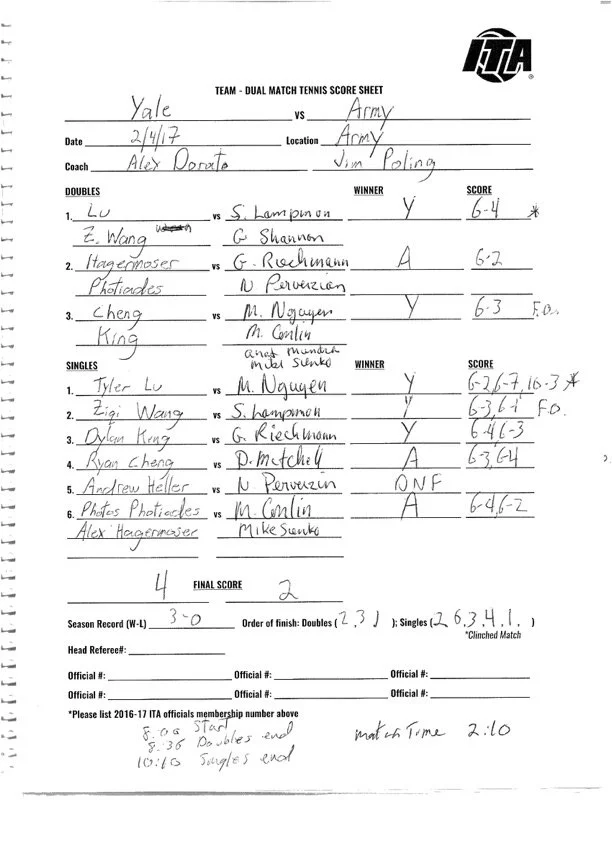 ITA
TEAM - DUAL MATCH TENNIS SCORE SHEET
Yale vs Army
Date 2/4/17 Location Army
Coach Alex Dorato Jim Poling
DOUBLES WINNER SCORE
1. Lu vs S. Lampman Y 6-4 *
Z. Wang G Shannon
2. Hagermoser vs G. Riechmann A 6-2
Photiades N Perverzian
3. Cheng vs M. Nguyen Y 6-3 F.O.
King M. Conlin
SINGLES WINNER SCORE
Mike Sienko
1. Tyler Lu vs M. Nguyen Y 6-2, 6-7, 10-3 *
2. Ziqi Wang vs S. Lampman Y 6-3, 6-1 F.O.
3. Dylan King vs G. Riechmann Y 6-4 6-3
4. Ryan Cheng vs D. Mitchell A 6-3, 6-4
5. Andrew Heller vs N Perverzin DNF
6. Photos Photiades vs M. Conlin A 6-4, 6-2
Alex Hagermoser Mike Sienko
4 FINAL SCORE 2
Season Record (W-L) 3-0 Order of finish: Doubles ( 2, 3 1 ); Singles (2, 6, 3, 4, 1, )
*Clinched Match
Head Referee#:
Official #: Official #: Official #:
Official #: Official #: Official #:
*Please list 2016-17 ITA officials membership number above
8:00 Start
8:36 Doubles end match Time 2:10
10:10 Singles end